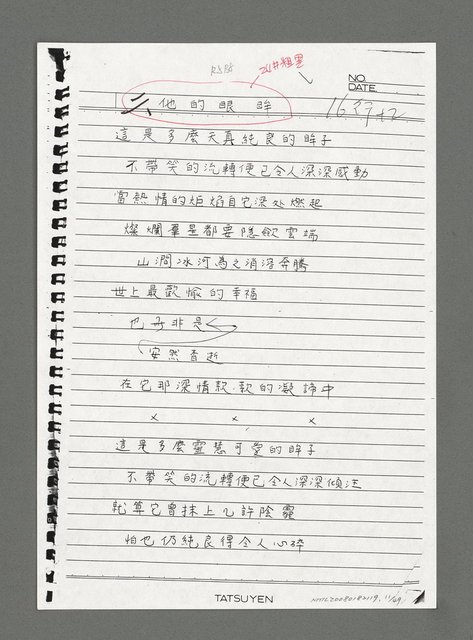 24井粗黑
NO.
DATE.
他的眼眸
16行+2
這是多麼天真純良的眸子
不帶笑的流轉便已令人深深感動
當熱情的炬焰自它深处燃起
燦爛羣星都要隱欲雲端
山澗冰河為之消溶奔騰
世上最歡愉的幸福
也再非是
安然香逝
在它那深情款款的凝諦中
× × ×
這是多麼靈慧可愛的眸子
不帶笑的流轉便已令人深深傾注
就算它曾抹上几許陰霾
怕也仍純良得令人心碎
TATSUYEN
NMTL20080182119, 11/29